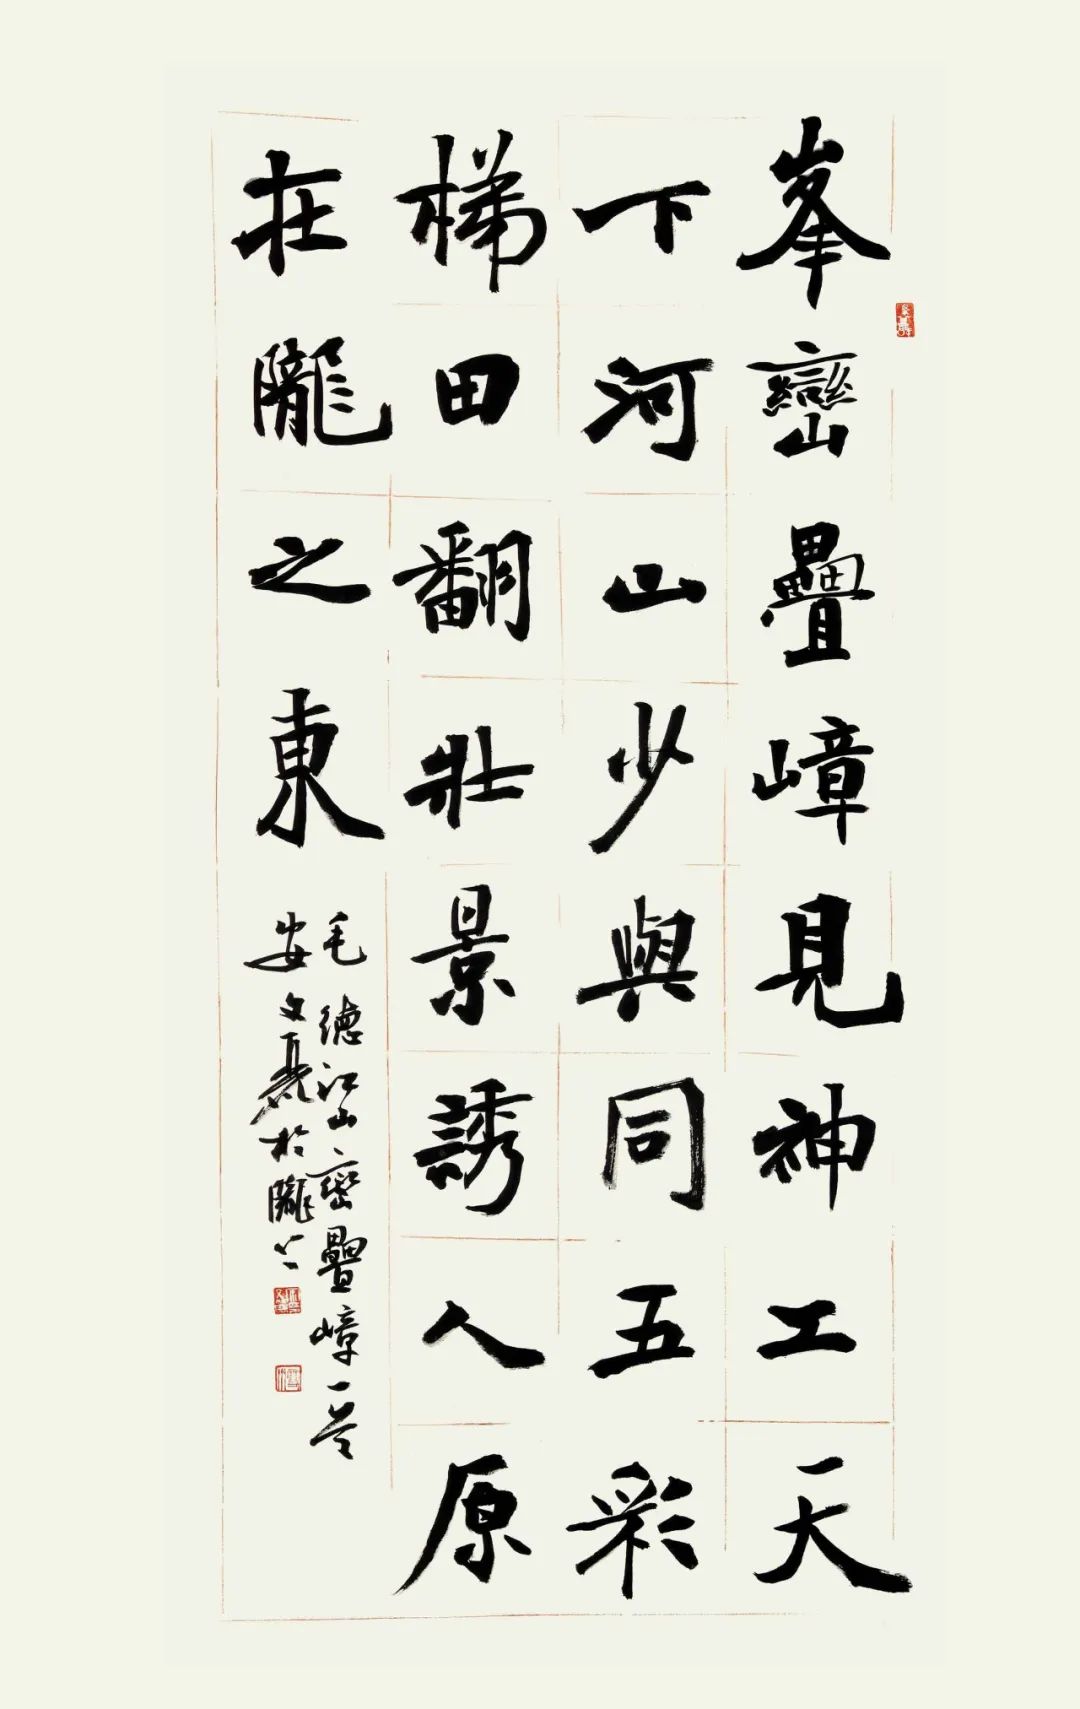 峯巒疊嶂見神工天
下河山少與同五彩
梯田翻壯景誘人原
在隴之東
毛德江山巒疊嶂一首
安文麗於隴上